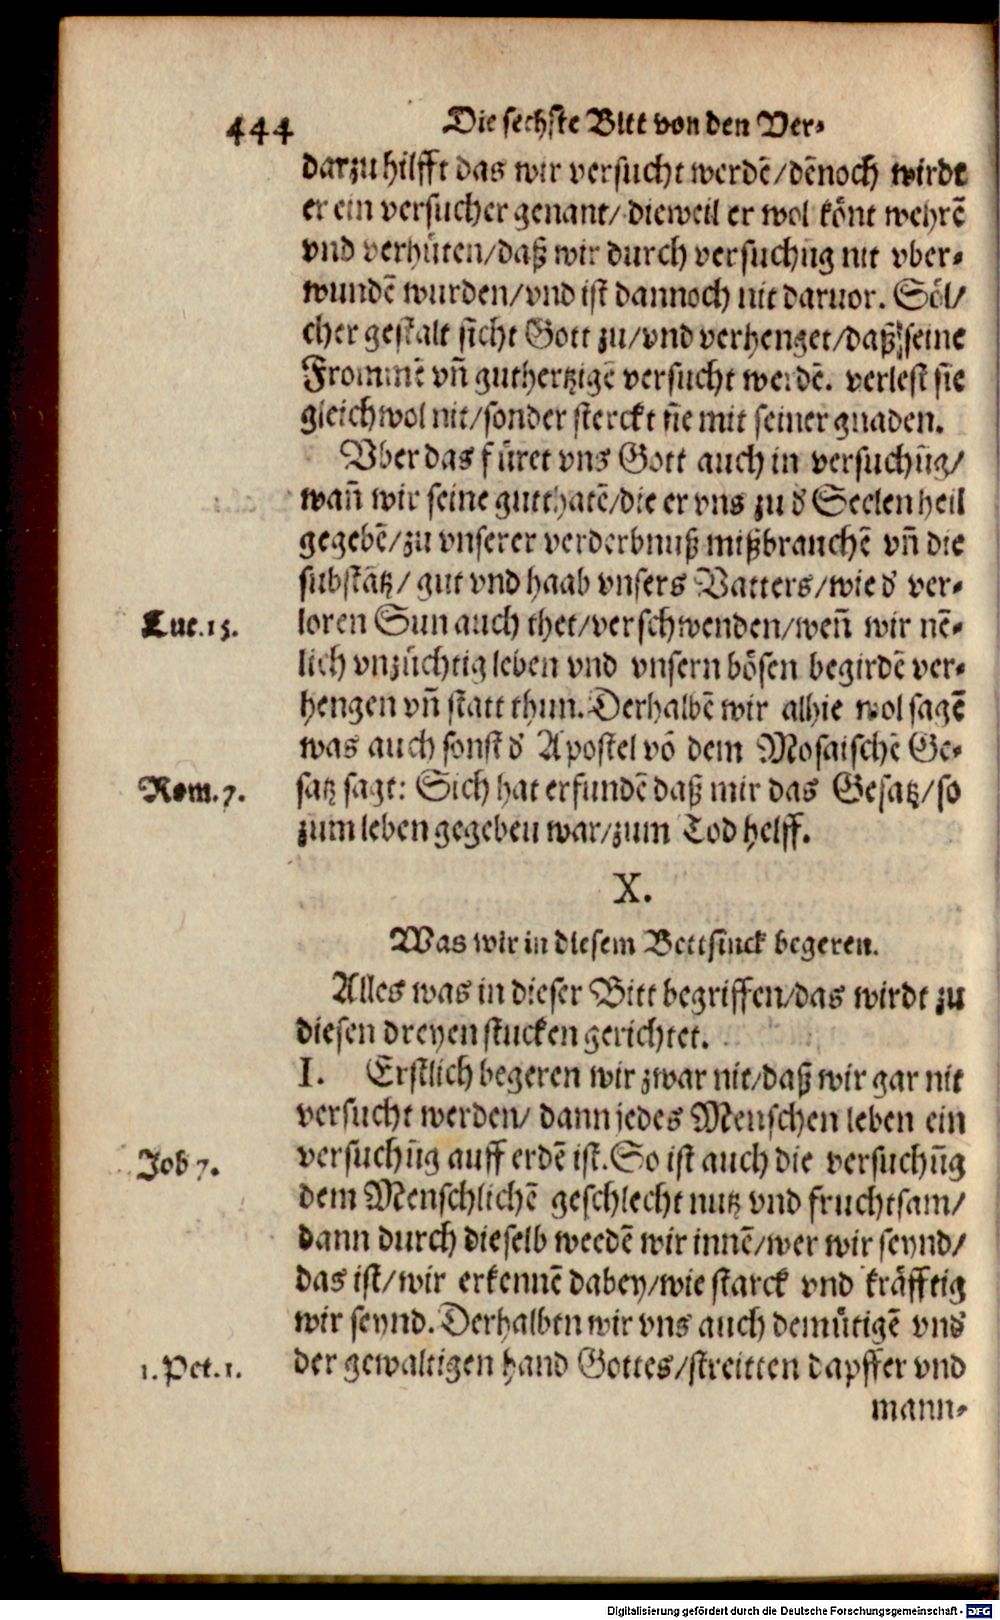 444 Die sechste Bitt von den Ver⸗
darzu hilfft das wir versucht werdē/dēnoch wirdt
er ein versucher genant/ dieweil er wol könt wehrē
vnd verhüten/daß wir durch versuchūg nit vber⸗
wundē wurden/vnd ist dannoch nit daruor. Söl/
cher gestalt sicht Gott zu/vnd verhenget/daß seine
Frommē vñ guthertzigē versucht werdē. verlest sie
gleichwol nit/sonder sterckt sie mit seiner gnaden.
Vber das füret vns Gott auch in versuchūg/
wañ wir seine gutthatē/die er vns zu d' Seelen heil
gegebē/zu vnserer verderbnuß mißbrauchē vñ die
substātz/ gut vnd haab vnsers Vatters/wie d' ver⸗
Luc.15. loren Sun auch thet/verschwenden/weñ wir nē⸗
lich vnzüchtig leben vnd vnsern bösen begirdē ver⸗
hengen vñ statt thun. Derhalbē wir alhie wol sagē
was auch sonst d' Apostel vō dem Mosaischē Ge⸗
Rom.7. satz sagt: Sich hat erfundē daß mir das Gesatz/so
zum leben gegeben war/zum Tod helff.
X.
Was wir in diesem Bettstuck begeren.
Alles was in dieser Bitt begriffen/das wirdt zu
diesen dreyen stucken gerichtet.
I. Erstlich begeren wir zwar nit/daß wir gar nit
versucht werden/ dann jedes Menschen leben ein
Job 7. versuchūg auff erdē ist. So ist auch die versuchūg
dem Menschlichē geschlecht nutz vnd fruchtsam/
dann durch dieselb werdē wir innē/wer wir seynd/
das ist/wir erkennē dabey/wie starck vnd kräfftig
wir seynd. Derhalben wir vns auch demütigē vnd'
1.Pet.1. der gewaltigen hand Gottes/streitten dapffer vnd
mann⸗
Digitalisierung gefördert durch die Deutsche Forschungsgemeinschaft - DFG